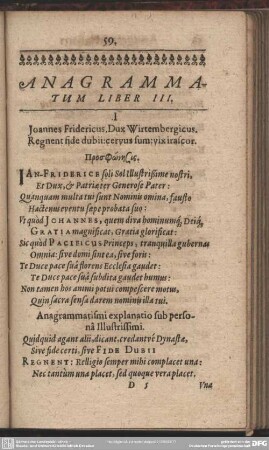 59.
ANAGRAMMA-
TUM LIBER III.
I
Joannes Fridericus, Dux Wirtembergicus.
Regnent fide dubii: cervus sum: vix irascor.
Προσφώνησις.
IAN-FRIDERICE soli Sol Illustrissime nostri,
Et Dux, & Patriæ ter Generose Pater:
Quanquam multa tui sunt Nominis omina, fausto
Hactenus eventu sæpe probata suo:
Ut quòd JOHANNES, quem diva hominumq́; Deûq́;
GRATIA magnificat, Gratia glorificat:
Sic quòd PACIFICUS Princeps, tranquilla gubernas
Omnia: sive domi sint ea, sive foris:
Te Duce pace suâ florens Ecclesia gaudet:
Te Duce pace suâ subdita gaudet humus:
Non tamen hos animi potui compescere motus,
Quin sacra sensa darem nominis illa tui.
Anagrammatismi explanatio sub perso-
nâ Illustrissimi.
Quidquid agant alii, dicant, credantve Dynastæ,
Sive fide certi, sive FIDE DUBII
REGNENT: Relligio semper mihi complacet una:
Nec tantùm una placet, sed quoque vera placet.
D 5
Vna